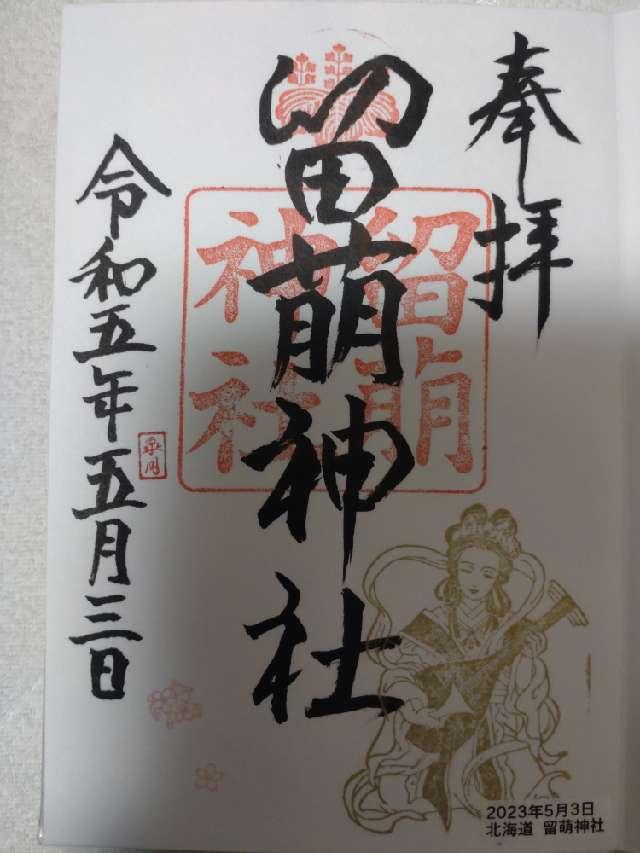 奉拝
留萌神社
留萌
神社
令和五年五月三日
2023年5月3日
北海道 留萌神社